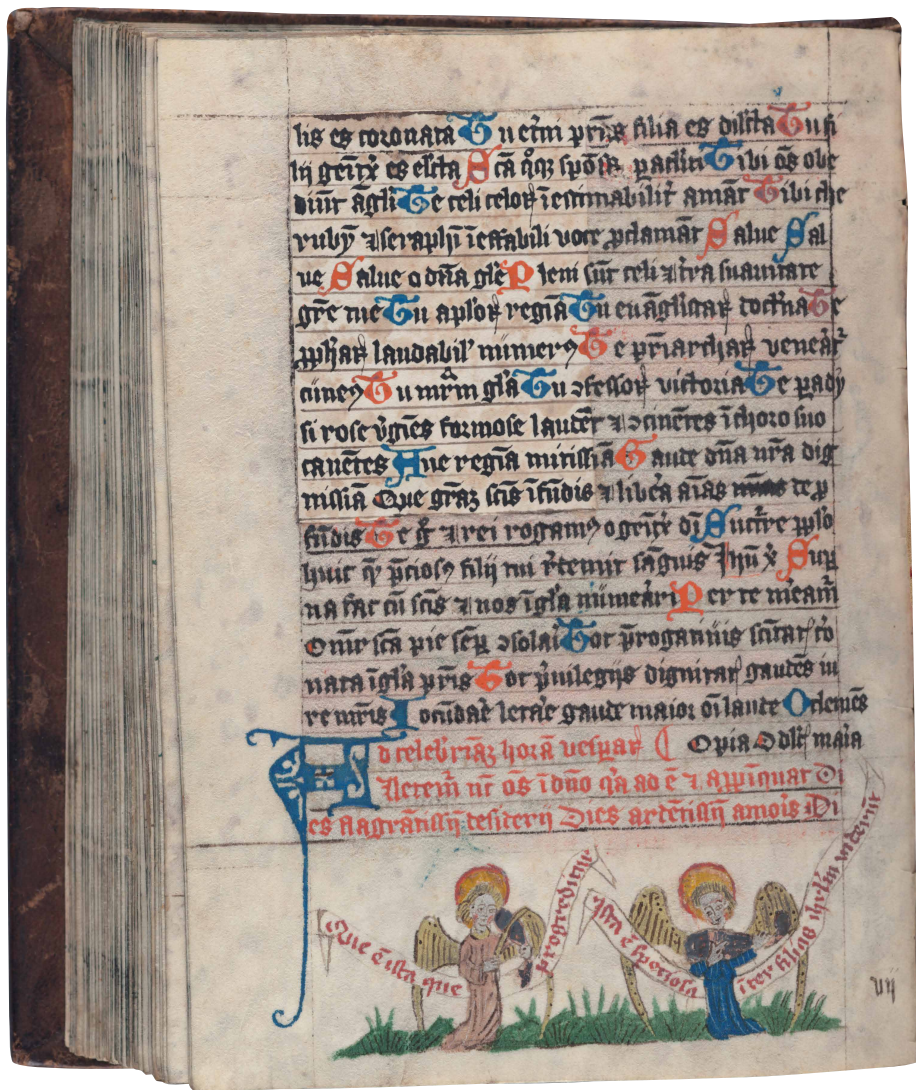 lis es coronata Tu et̄ni pr̄is filia es dil̄cta Tu fi
lij gen̄t̄x es el̄cta Sc̄a q̊z spōsa pacl̄iti Tibi ōs obe
diūt āgli Te celi celoꝝ īestimabilit̄ amāt Tibi che
rubȳ ⁊ seraphī īeffabili voce ꝓclamāt Salue Sal
ue Salue o dn̄a gl̄e Pleni sūt celi ⁊ t̄ra suauitate
gr̄e tue Tu apl̄oꝝ regīa Tu euāgl̄istaꝝ doct̄na Te
ꝓph̄aꝝ laudabil' numerꝰ Te pr̄iarchaꝝ veneāt̄
cuneꝰ Tu mr̄m gl̄a Tu ꝯfessoꝝ victoria Te ꝑady
si rose v̄gīes formose laudēt ⁊ ꝯtinētes ī choro suo
canētes Aue regīa mitissīa Gaude dn̄a nr̄a dig
nissīa Que gr̄az sc̄is īfūdis ⁊ lib̄ra aīas de ꝓ
fūdis Te g̊ ⁊ rei rogamꝰ o gen̄t̄x dī Succr̄re pp̄lo
huic qͥ p̄ciosꝰ filij tui r̄demit sāguis Ihū x̄ Sup̄
na fac cū sc̄is ⁊ nos ī gl̄a nūmeāri Per te meam̄
Om̄e sc̄a pie sēꝑ ꝯsolai Tot p̄roganijs sc̄itatꝭ do
nata ī gl̄a pr̄is Tot p̄uilegijs dignitatꝭ gaudēs iu
re mr̄is Iocūdāe letāe gaude maior oī laude O clemēs
O pia O dl̄cꝭ maīa
d celeb̄riaz horā vesꝑaꝝ
Aletem̄ nr̄ ōs ī dn̄o qͥa ad ē ⁊ apꝓīquat Di
es flagrātissij desiderij Dies ardētissij amoīs Di
Que ē ista que progreditur
Ista ē speciosa īter filias ihrl̄m viderūt
vij